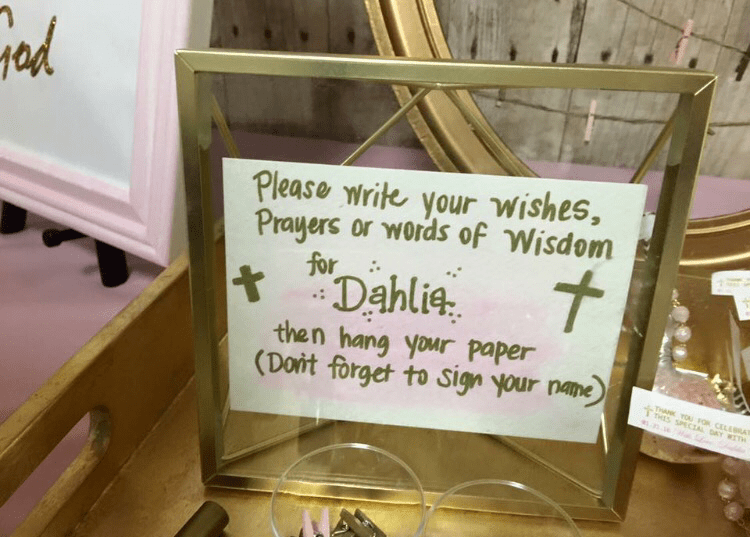 God
Please write your wishes,
Prayers or words of Wisdom
for
Dahlia
then hang your paper
(Don't forget to sign your name)
THANK YOU FOR CELEBRAT
THIS SPECIAL DAY WITH